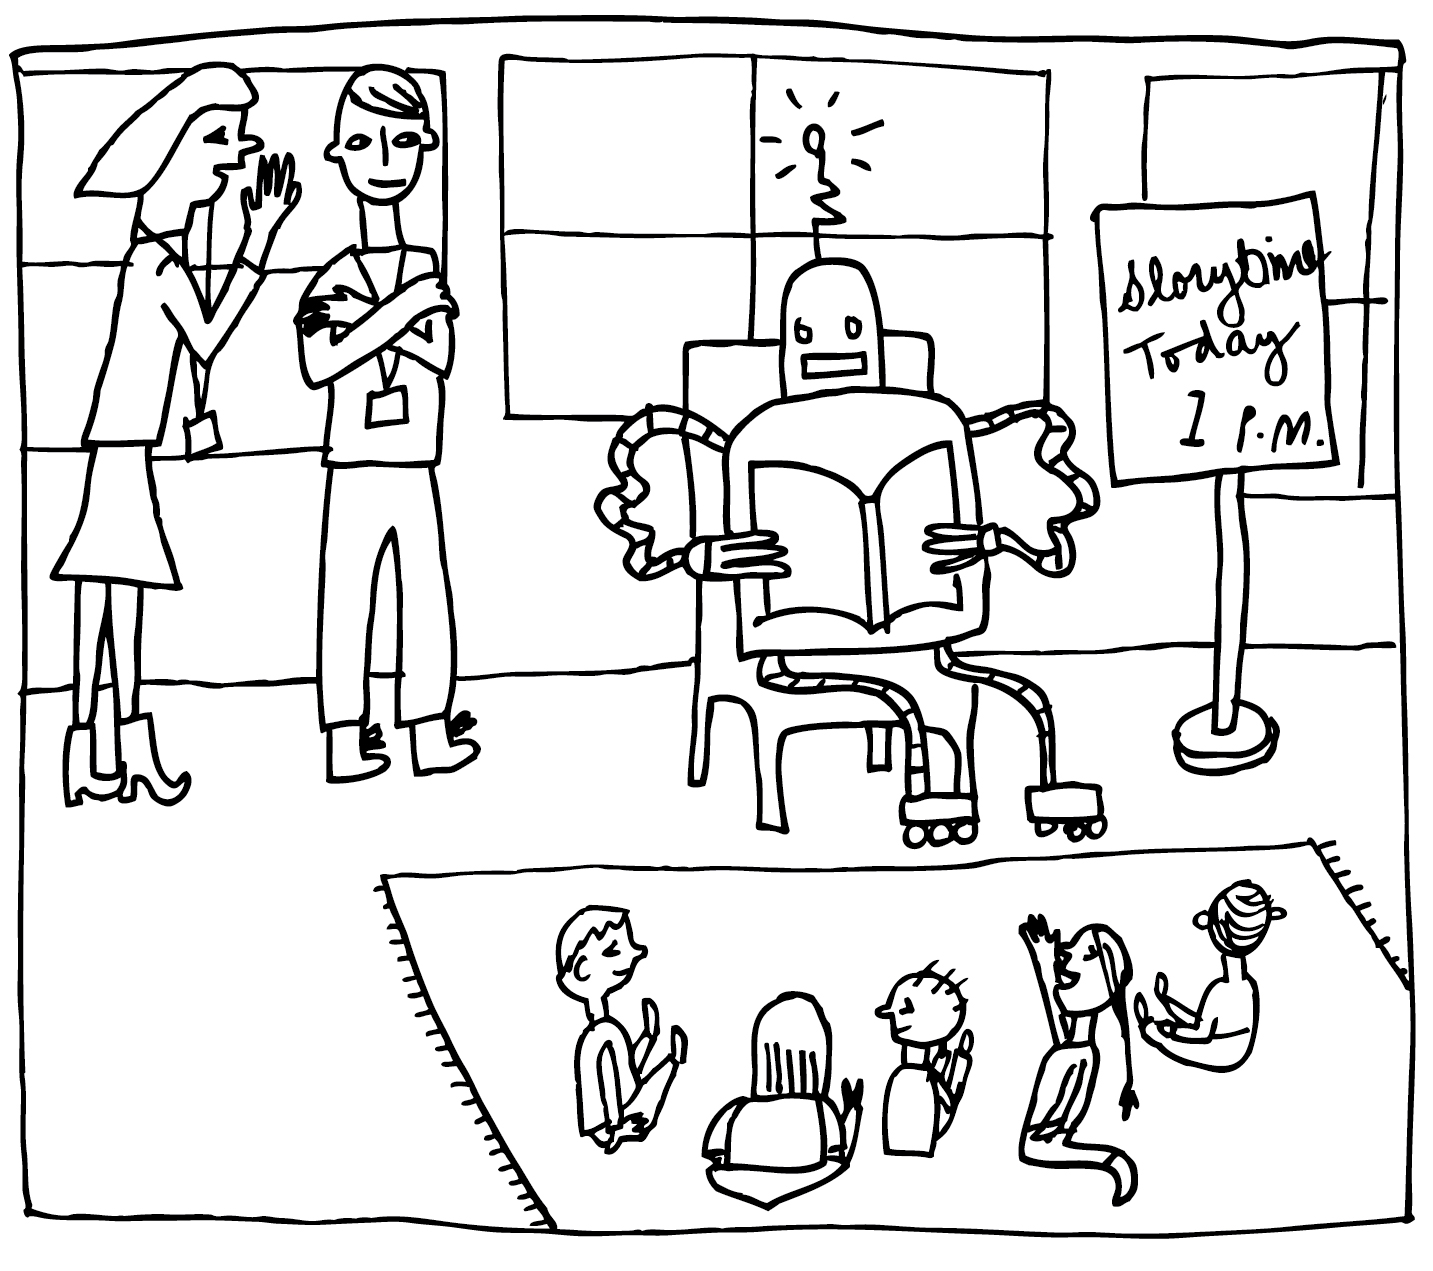 Storytime
Today
1 P.M.